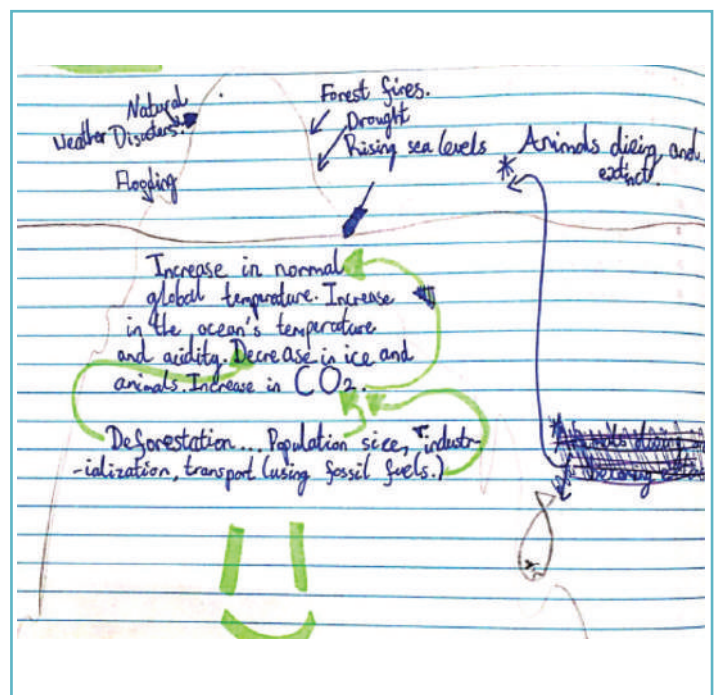 Natural
Weather Disasters.
Flooding
Forest fires.
Drought
Rising sea levels
Animals dieing and
extinct.
Increase in normal
global temperature. Increase
in the ocean's temperature
and acidity. Decrease in ice and
animals. Increase in CO2.
Deforestation... Population size, industr-
-ialization, transport (using fossil fuels.)
Animals dieing